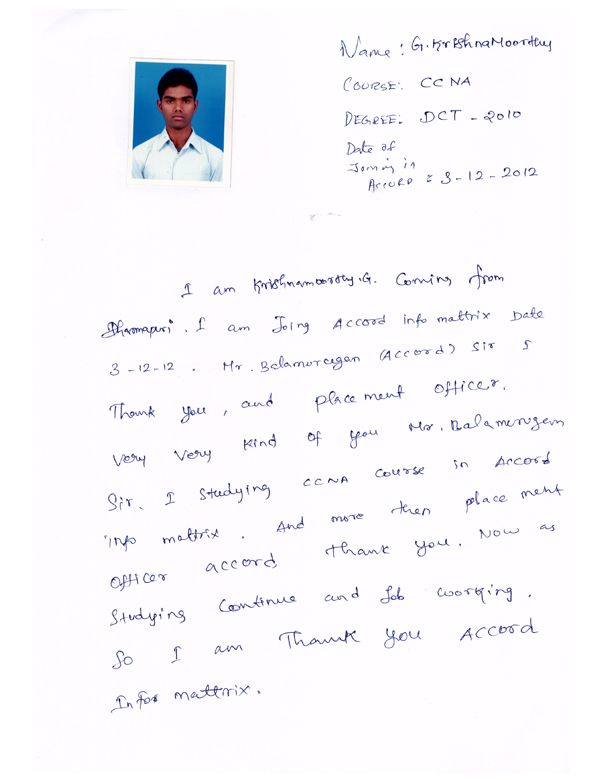 Name : G. Krishnamoorthy
COURSE: CCNA
DEGREE: DCT - 2010
Date of
Joining in
ACCORD : 3-12-2012
I am Krishnamoorthy.G. Coming from
Dharmapuri. I am Joing Accord info mattrix Date
3-12-12. Mr. Balamurugan (Accord) Sir &
Thank you, and placement officer.
very very kind of you Mr. Balamurugan
Sir. I studying CCNA Course in Accord
info mattrix. And more then placement
officer accord thank you. Now as
studying continue and job working.
So I am Thank you Accord
Infor mattrix.